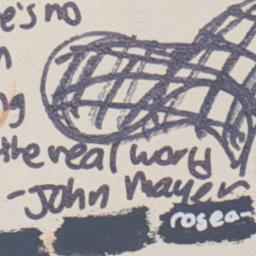 e's no
n
ng
the real world
-John Mayer
rosea-